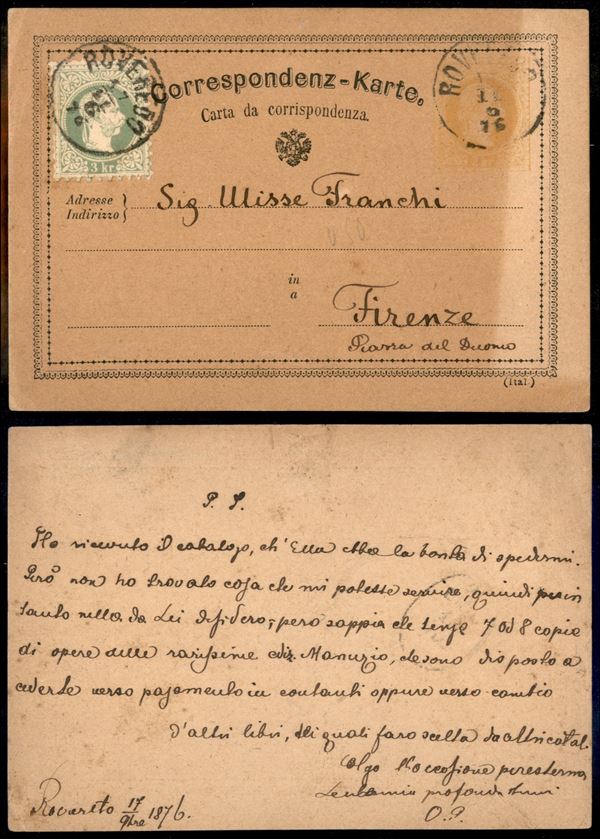 Correspondenz-Karte.
Carta da corrispondenza.
ROVEREDO
3 kr
ROV
Adresse
Indirizzo
Sig. Ulisse Franchi
in
a
Firenze
Piazza del Duomo
(Ital.)
P. S.
Ho ricevuto il catalogo, ch'Ella ebbe la bontà di spedirmi.
Però non ho trovato cosa che mi potesse servire, quindi per in
tanto nulla da Lei desidero; però sappia che tengo 7 od 8 copie
di opere delle rarissime ediz. Manuzio, che sono disposto a
cederle verso pagamento in contanti oppure verso cambio
d'altri libri, dei quali farò scelta da altri catal.
Colgo l'occasione per esterna
le la mia profonda
O. P.
Rovereto 17/9bre 1876.